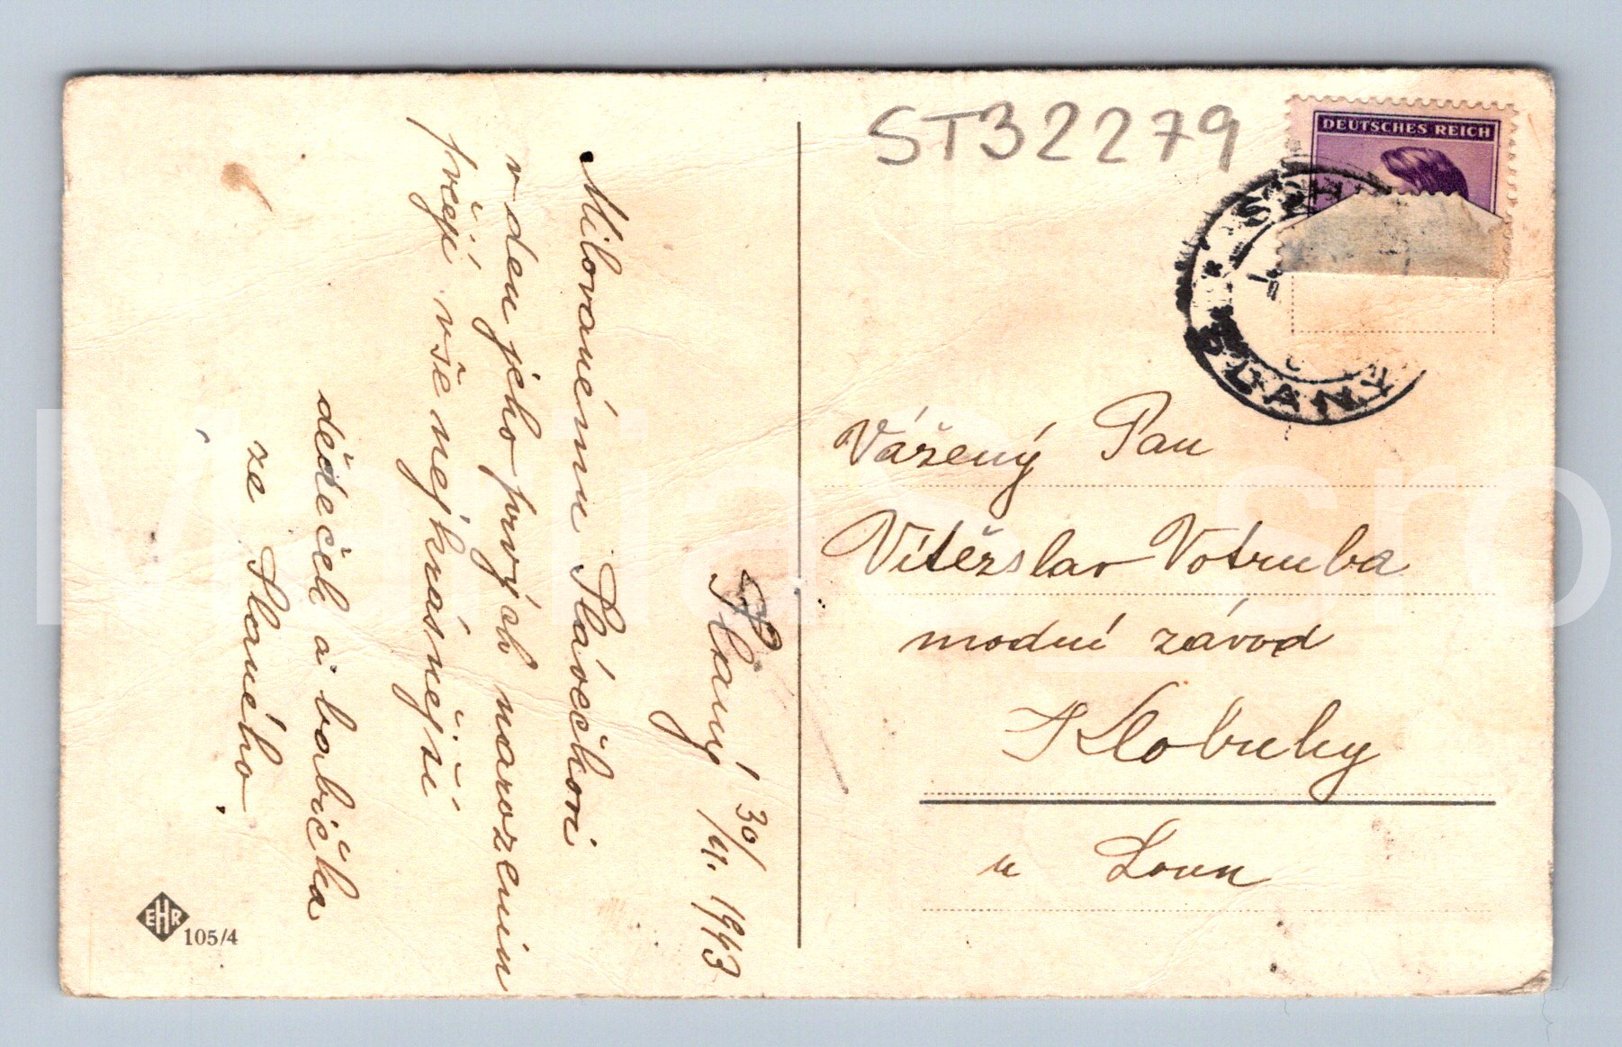 Slaný 30/VI. 1943
Milovanému Slávečkovi
v den jeho prvých narozenin
přejí vše nejkrásnější
dědeček a babička
ze Slaného.
EHR
105/4
ST32279
DEUTSCHES REICH
SLANÝ
Vážený Pan
Vítězslav Votruba
modní závod
Klobuky
u Loun